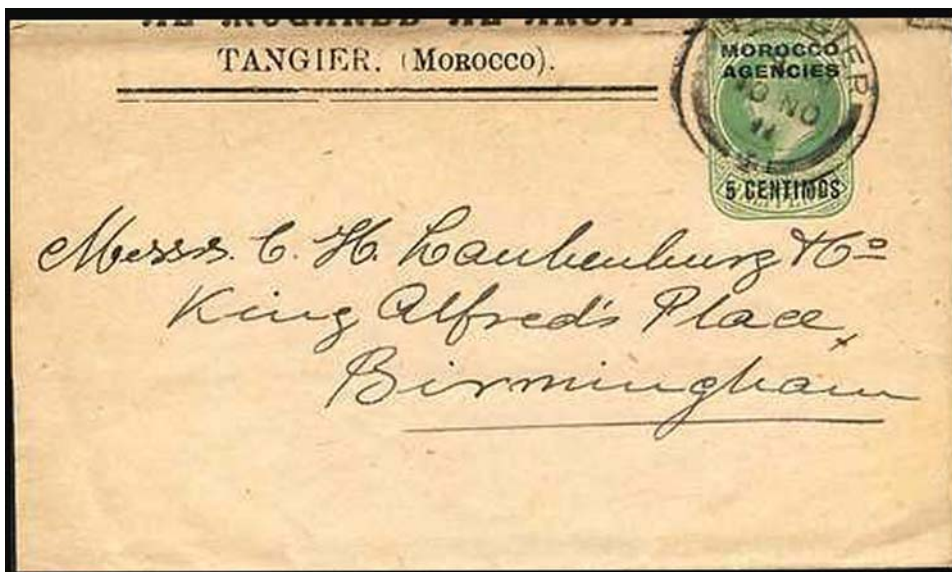 TANGIER. (MOROCCO).
MOROCCO
AGENCIES
10 NO
11
5 CENTIMOS
Messrs. C. H. Laubenburg & Co
King Alfred's Place,
Birmingham